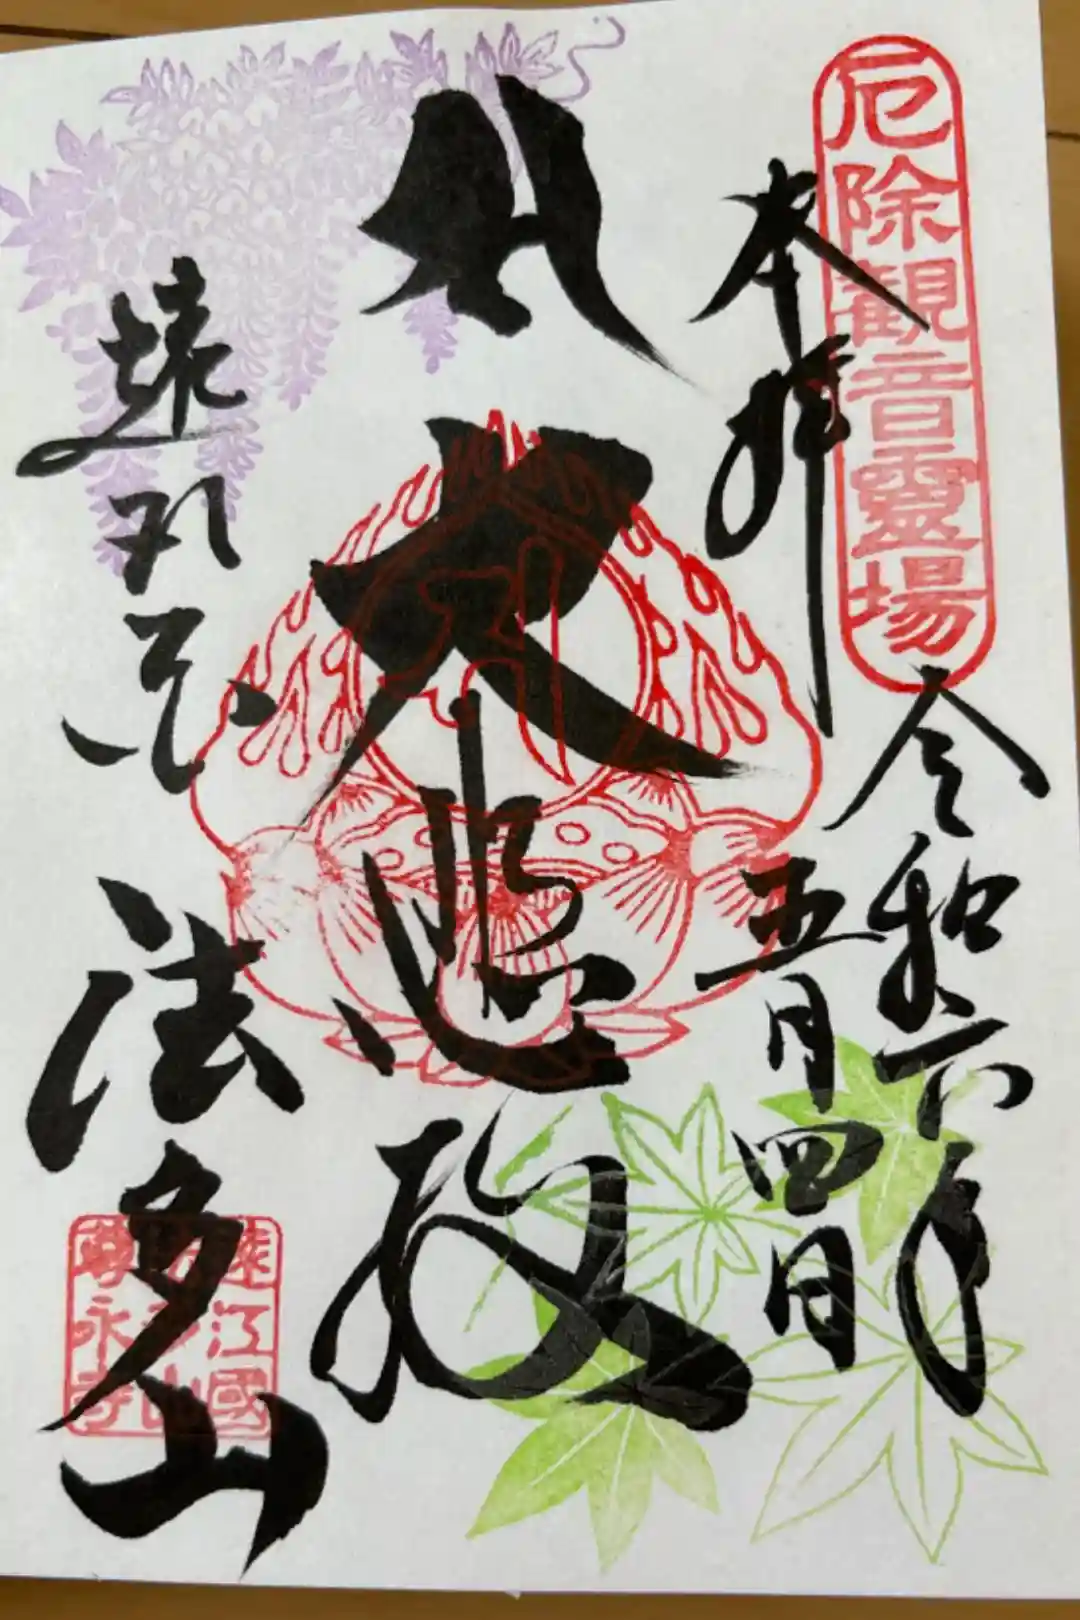 厄除観音靈場
奉拝
令和六年
五月四日
大悲殿
遠州
法多山
遠江國
法多山
尊永寺